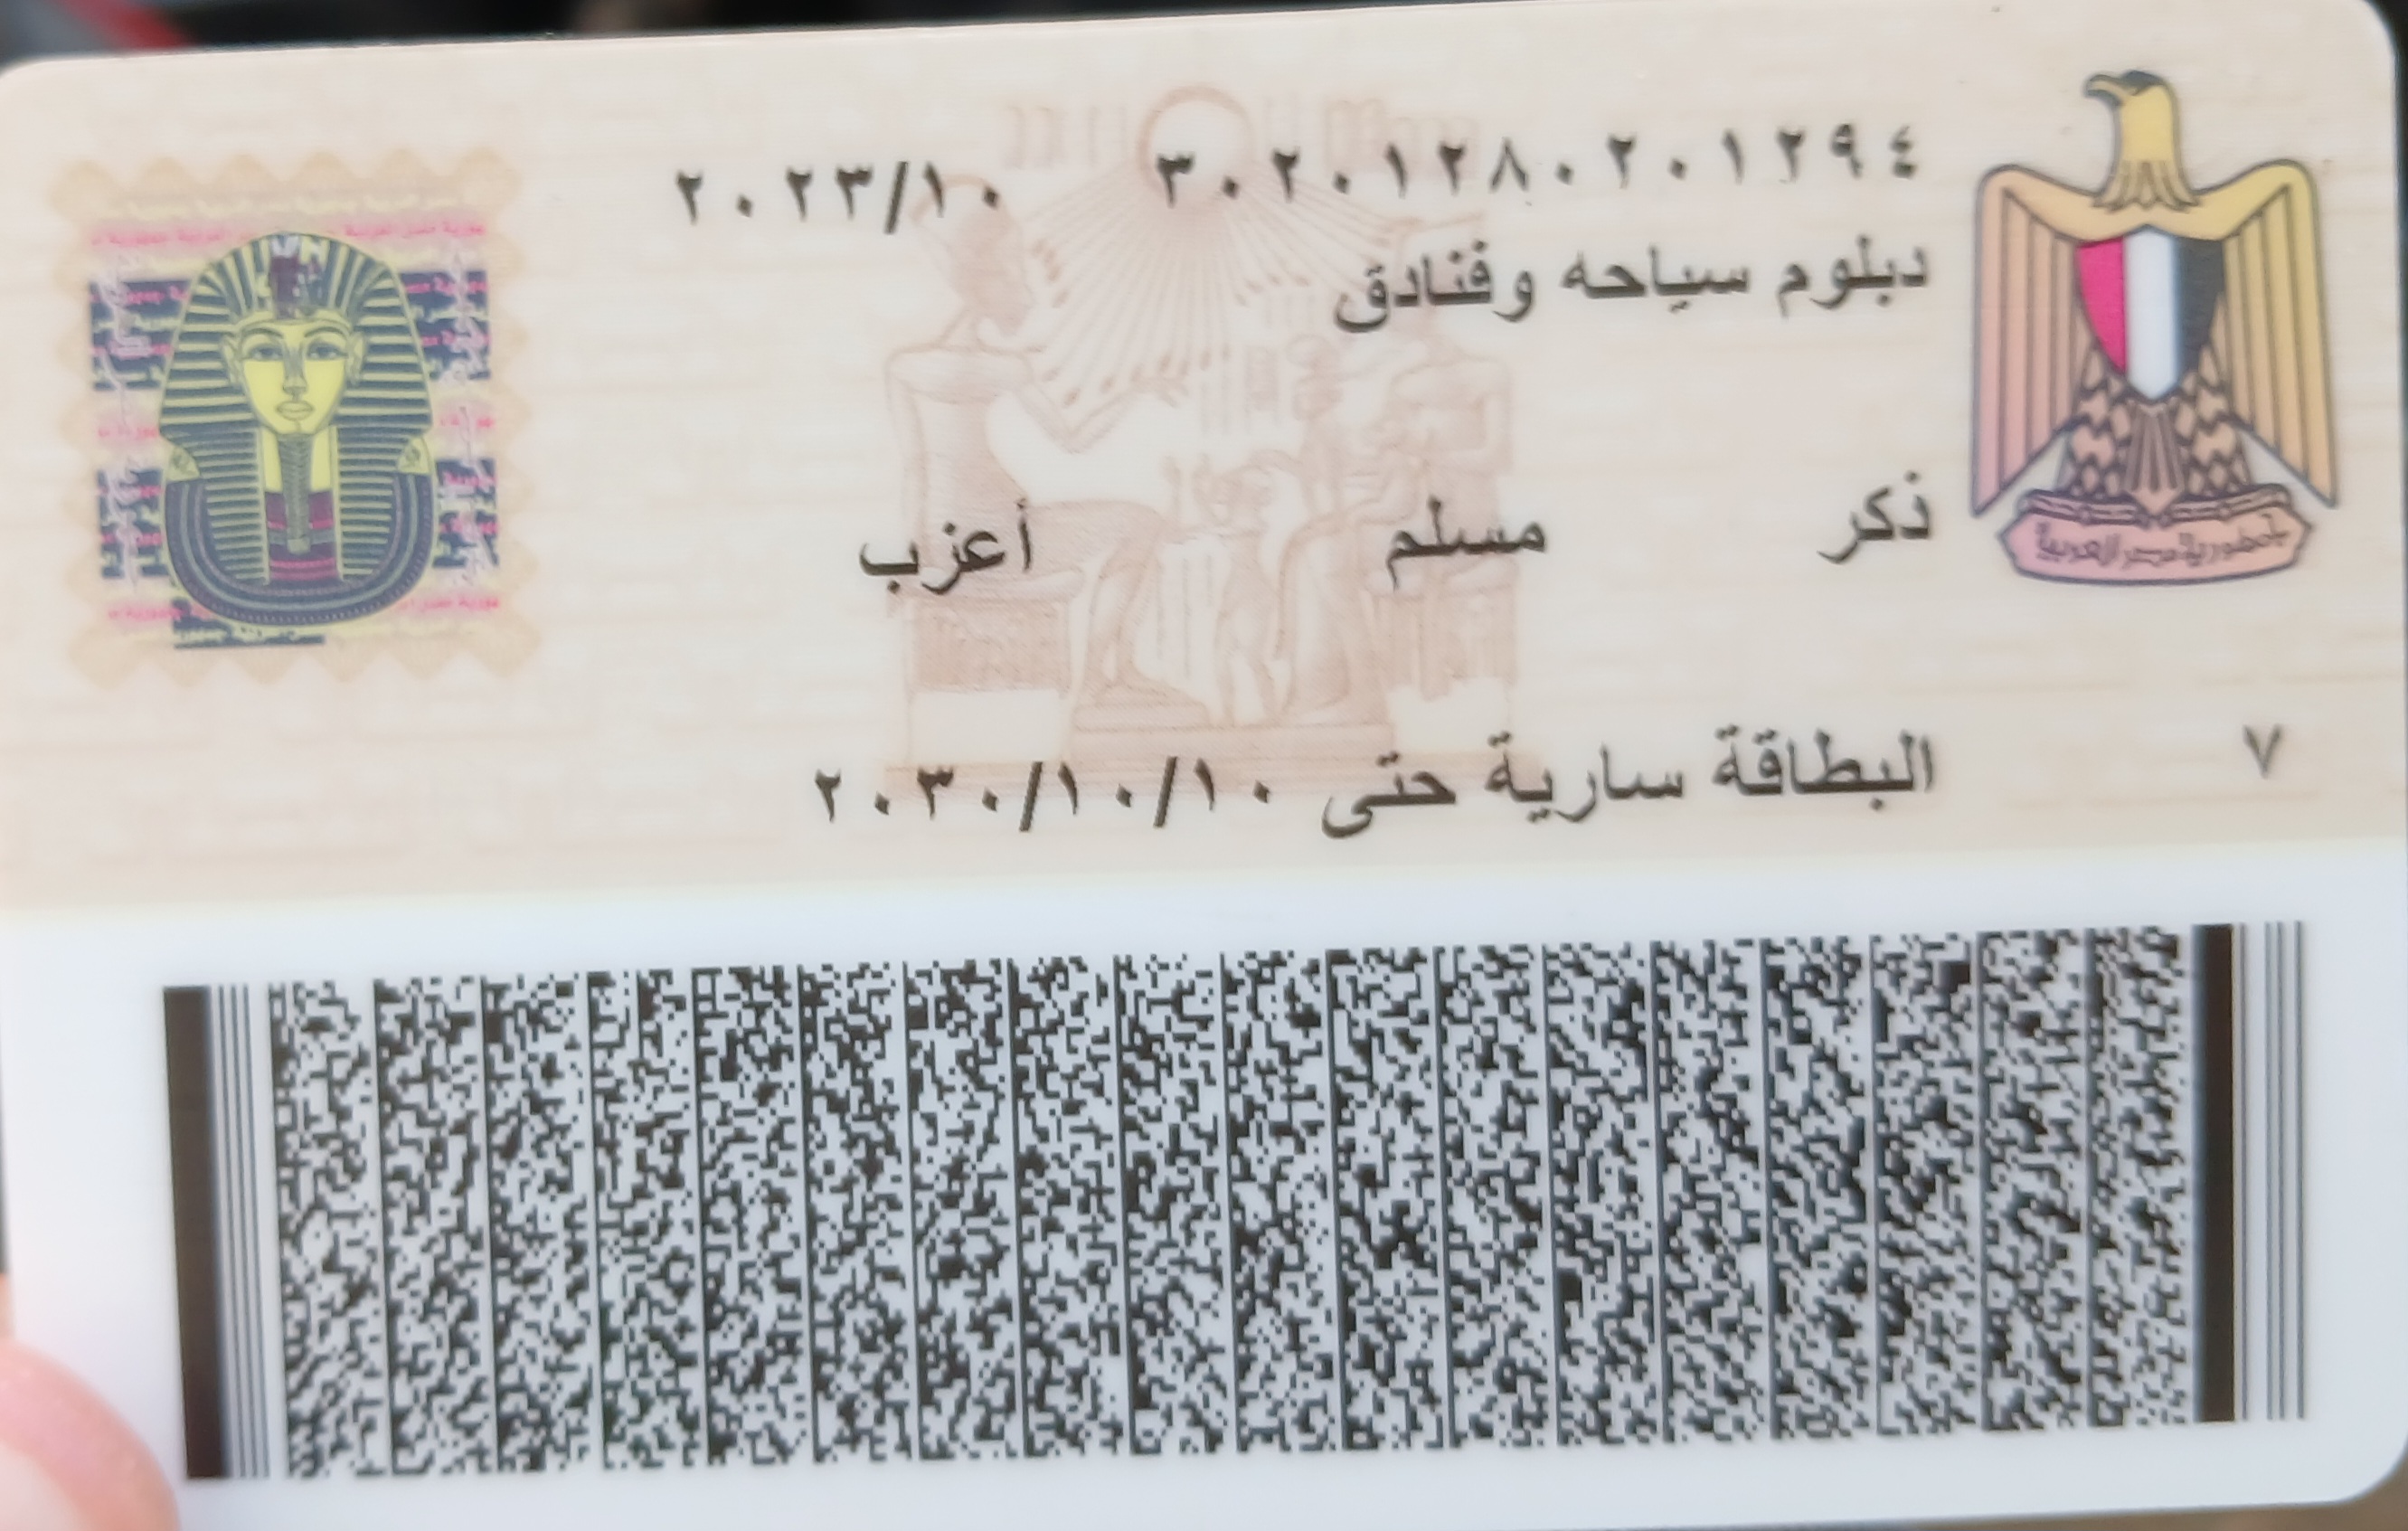 ٣٠٢٠١٢٨٠٢٠١٢٩٤ ٢٠٢٣/١٠
دبلوم سياحه وفنادق
ذكر مسلم أعزب
البطاقة سارية حتى ٢٠٣٠/١٠/١٠
٧
جمهورية مصر العربية